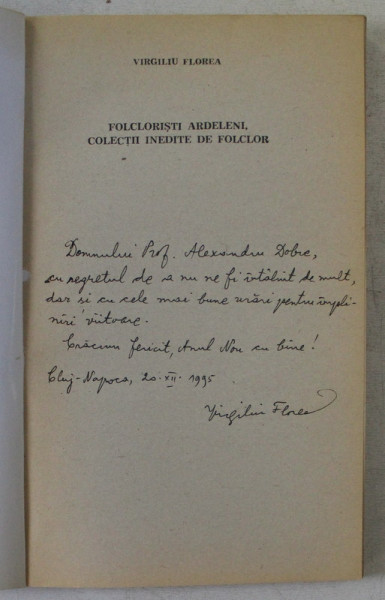 VIRGILIU FLOREA
FOLCLORIȘTI ARDELENI,
COLECȚII INEDITE DE FOLCLOR
Domnului Prof. Alexandru Dobre,
cu regretul de a nu ne fi întâlnit de mult,
dar și cu cele mai bune urări pentru împli-
niri viitoare.
Crăciun fericit, Anul Nou cu bine!
Cluj-Napoca, 20.XII.1995
Virgiliu Florea